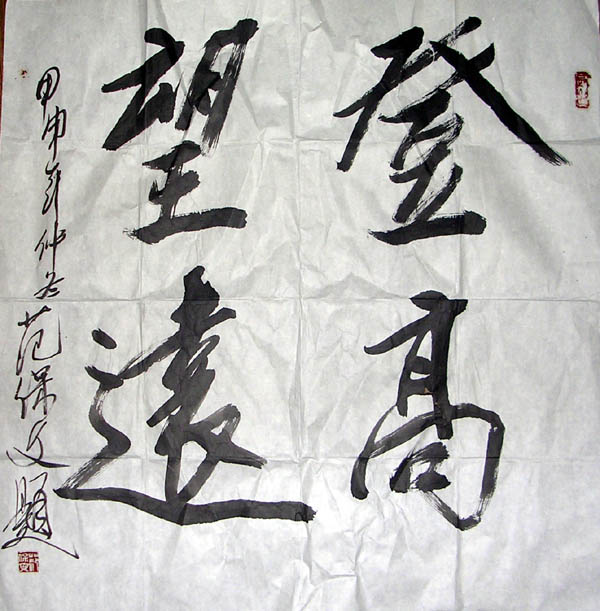 登高
望遠
甲申年仲冬范保文題